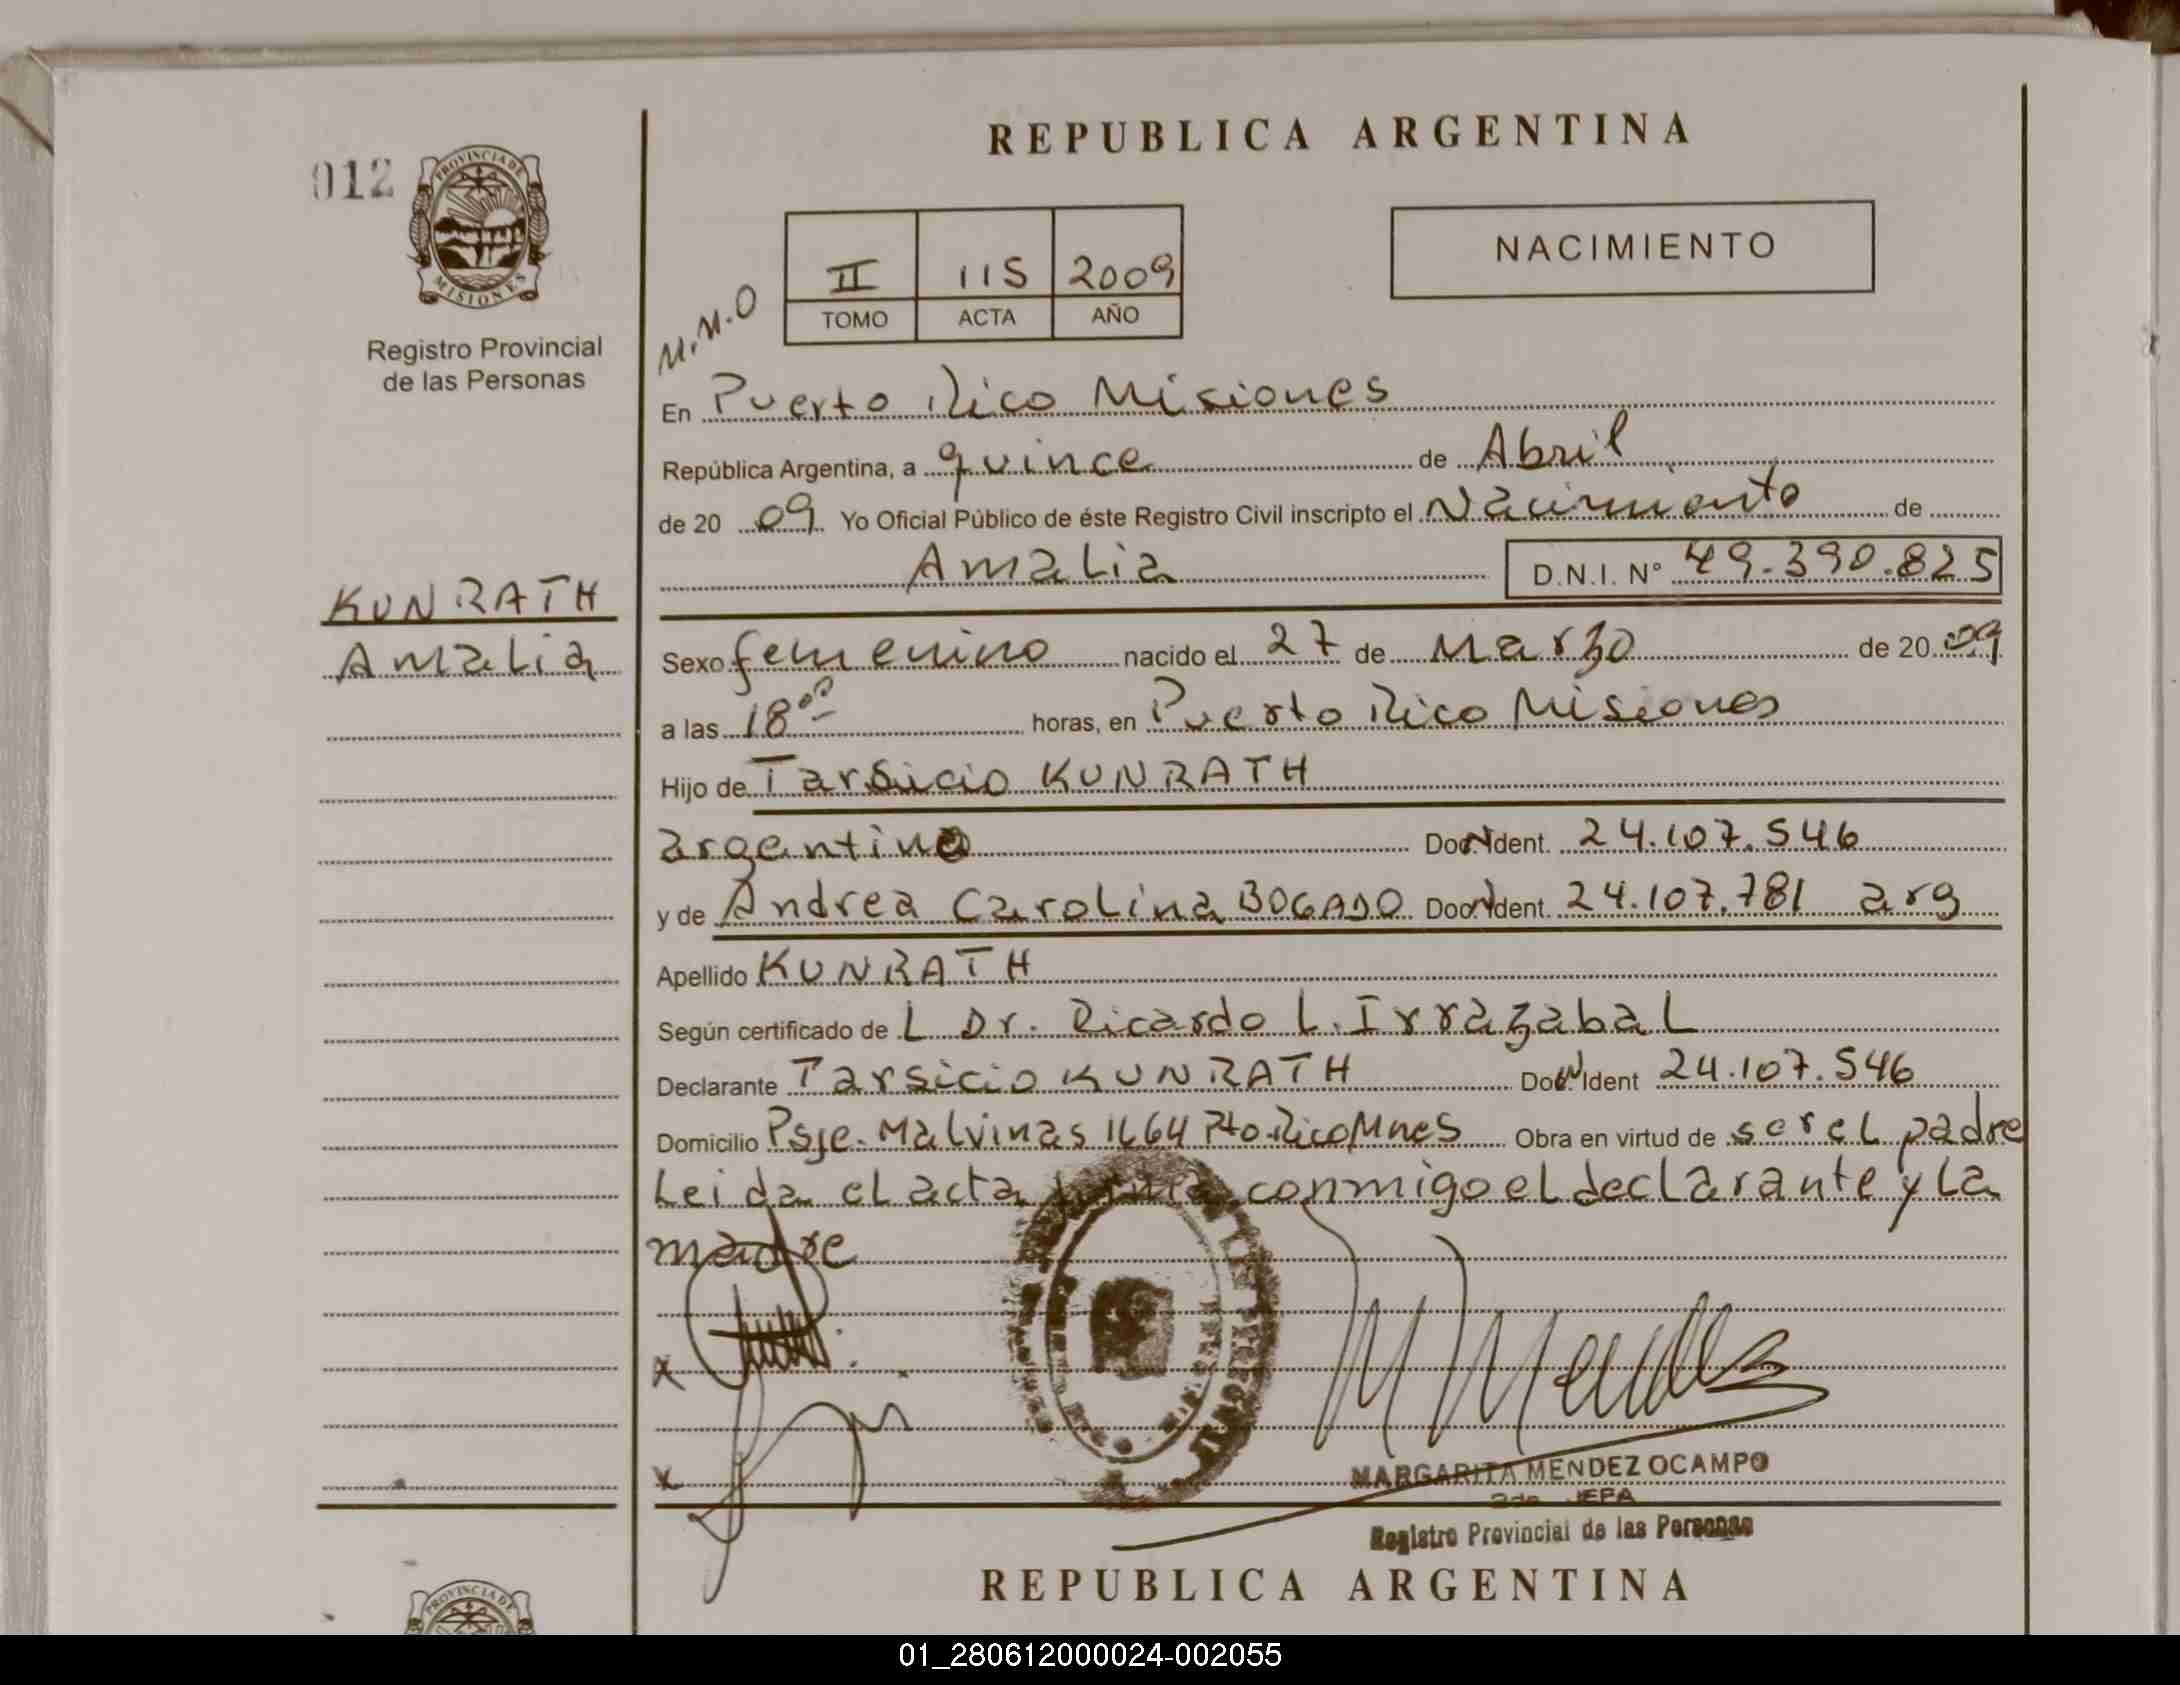 REPUBLICA ARGENTINA
012
PROVINCIA DE
MISIONES
Registro Provincial
de las Personas
II 115 2009
TOMO ACTA AÑO
NACIMIENTO
M.M.O
En Puerto Rico Misiones
República Argentina, a quince de Abril
de 2009 Yo Oficial Público de éste Registro Civil inscripto el Nacimiento de
Amalia D.N.I. N° 49.390.825
KUNRATH
Amalia
Sexo femenino nacido el 27 de Marzo de 2009
a las 18 00 horas, en Puerto Rico Misiones
Hijo de Tarsicio KUNRATH
argentino Doc. Ident. 24.107.546
y de Andrea Carolina BOGADO Doc. Ident. 24.107.781 arg
Apellido KUNRATH
Según certificado de L Dr. Ricardo L. Irrazabal
Declarante Tarsicio KUNRATH Doc. Ident 24.107.546
Domicilio Psje. Malvinas 1664 Pto. Rico Mnes Obra en virtud de ser el padre
Leida el acta firma conmigo el declarante y la
madre
x
x
MARGARITA MENDEZ OCAMPO
2da. JEFA
Registro Provincial de las Personas
REPUBLICA ARGENTINA
PROVINCIA DE
01_280612000024-002055